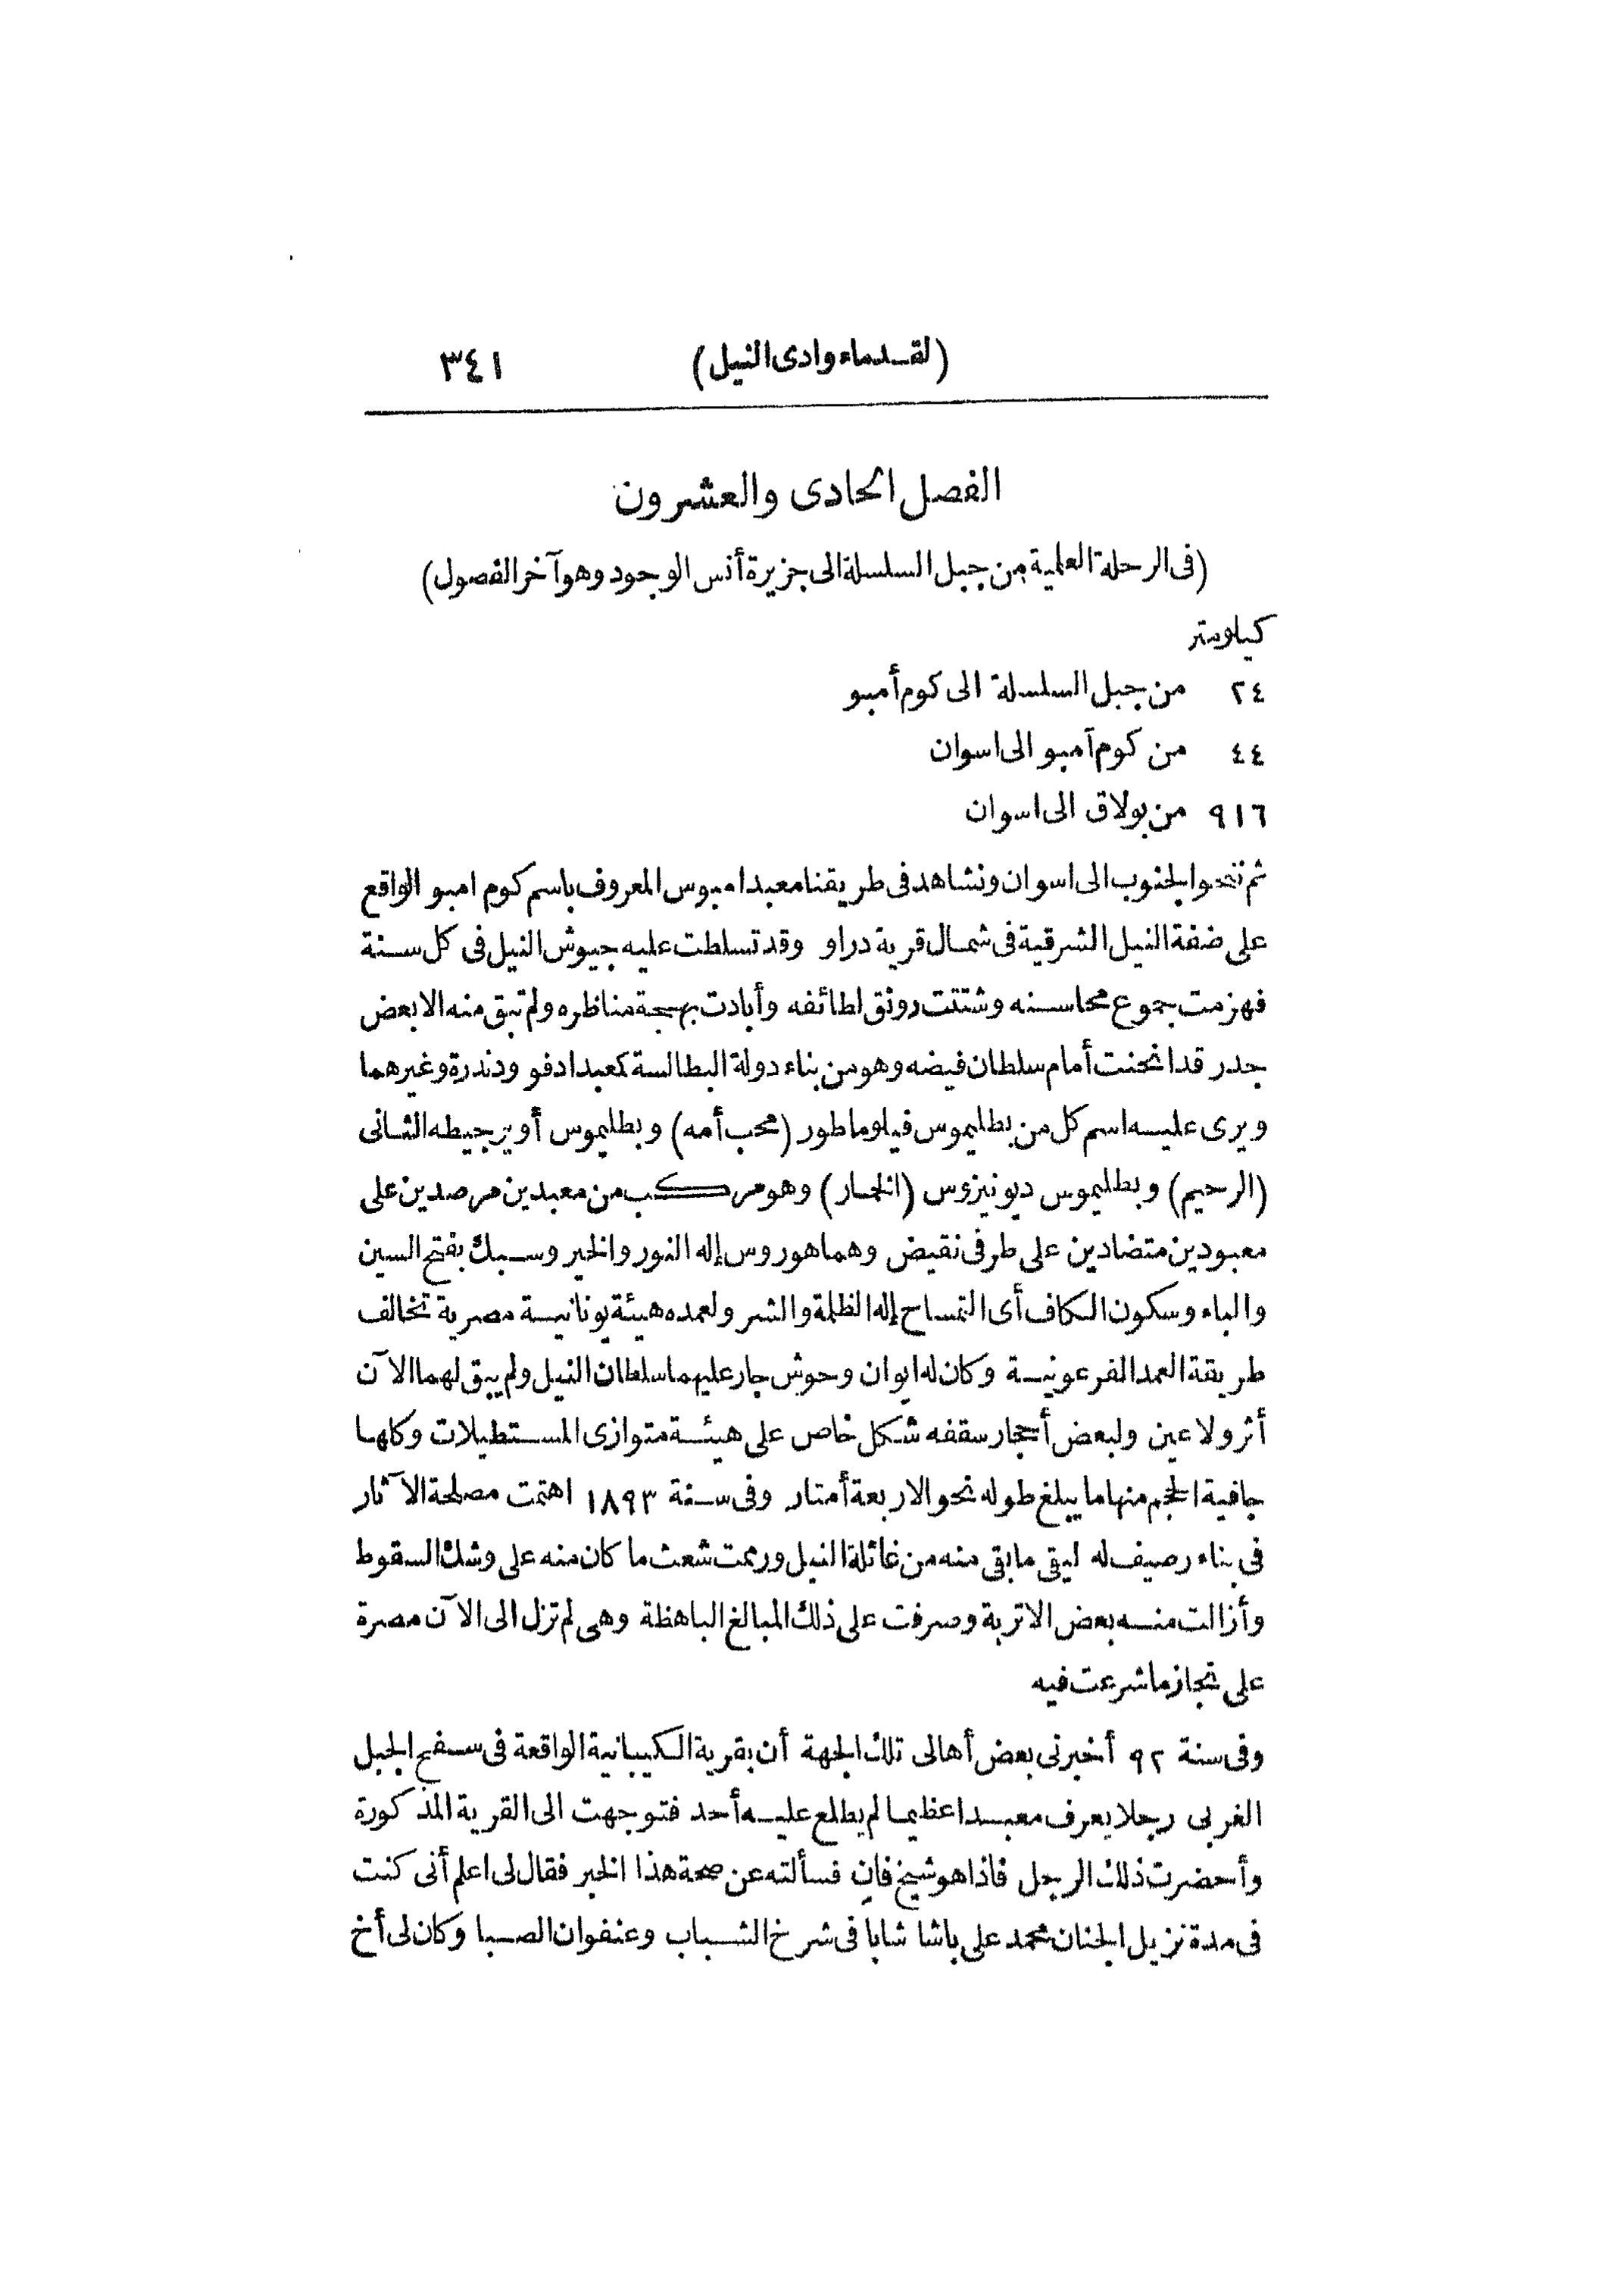 (لقدماء وادى النيل) ٣٤١
الفصل الحادى والعشرون
(فى الرحلة العلمية من جبل السلسلة الى جزيرة أنس الوجود وهو آخر الفصول)
كيلومتر
٢٤ من جبل السلسلة الى كوم أمبو
٤٤ من كوم آمبو الى اسوان
٩١٦ من بولاق الى اسوان
ثم نتحوا الجنوب الى اسوان ونشاهد فى طريقنا معبد امبوس المعروف باسم كوم امبو الواقع
على ضفة النيل الشرقية فى شمال قرية دراو وقد تسلطت عليه جيوش النيل فى كل سنة
فهزمت جموع محاسنه وشتتت رونق لطائفه وأبادت بهجة مناظره ولم تبق منه الا بعض
جدر قد انحنت أمام سلطان فيضه وهو من بناء دولة البطالسة كمعبد ادفو ودندرة وغيرهما
ويرى عليه اسم كل من بطليموس فيلوماطور (محب أمه) وبطليموس أويرجيطه الثانى
(الرحيم) وبطليموس ديونيزوس (الخمار) وهو مركب من معبدين مرصدين على
معبودين متضادين على طرفى نقيض وهما هوروس إله النور والخير وسبك بفتح السين
والباء وسكون الكاف أى التمساح إله الظلمة والشر ولعمده هيئة يونانية مصرية تخالف
طريقة العمد الفرعونية وكان له ايوان وحوش جار عليهما سلطان النيل ولم يبق لهما الآن
أثر ولا عين ولبعض أحجار سقفه شكل خاص على هيئة متوازى المستطيلات وكلها
جافية الحجم منها ما يبلغ طوله نحو الاربعة أمتار وفى سنة ١٨٩٣ اهتمت مصلحة الآثار
فى بناء رصيف له ليقى ما بقى منه من غائلة النيل ورممت شعث ما كان منه على وشك السقوط
وأزالت منه بعض الاتربة وصرفت على ذلك المبالغ الباهظة وهى لم تزل الى الآن مصرة
على نجاز ما شرعت فيه
وفى سنة ٩٢ أخبرنى بعض أهالى تلك الجهة أن بقرية الكيبانية الواقعة فى سفح الجبل
الغربى رجلا يعرف معبدا عظيما لم يطلع عليه أحد فتوجهت الى القرية المذكورة
وأحضرت ذلك الرجل فاذا هو شيخ فان فسألته عن صحة هذا الخبر فقال لى اعلم أنى كنت
فى مدة نزيل الجنان محمد على باشا شابا فى شرخ الشباب وعنفوان الصبا وكان لى أخ